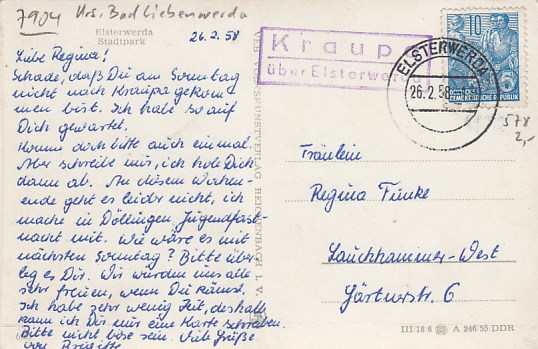 7904 Krs. Bad Liebenwerda
Elsterwerda
Stadtpark
26.2.58
Liebe Regina!
Schade, daß Du am Sonntag
nicht nach Kraupa gekom
men bist. Ich habe so auf
Dich gewartet.
Komme doch bitte auch einmal.
Aber schreibe mir, ich hole Dich
dann ab. An diesem Wochen-
ende geht es leider nicht, ich
mache in Döllingen Jugendfast-
nacht mit. Wie wäre es mit
nächsten Sonntag? Über
leg es Dir. Wir würden uns alle
sehr freuen, wenn Du kämst.
Ich habe sehr wenig Zeit, deshalb
kann ich Dir nur eine Karte schreiben.
Bitte nicht böse sein. Viele Grüße
von Brigitte
VEB VOLKSKUNSTVERLAG REICHENBACH I. V.
Kraupa
über Elsterwerda
ELSTERWERDA
26.2.58
10
DEUTSCHE DEMOKRATISCHE REPUBLIK
578
2,-
Fräulein
Regina Finke
Lauchhammer-West
Gärtnerstr. 6
III/18/6 A 246/55 DDR